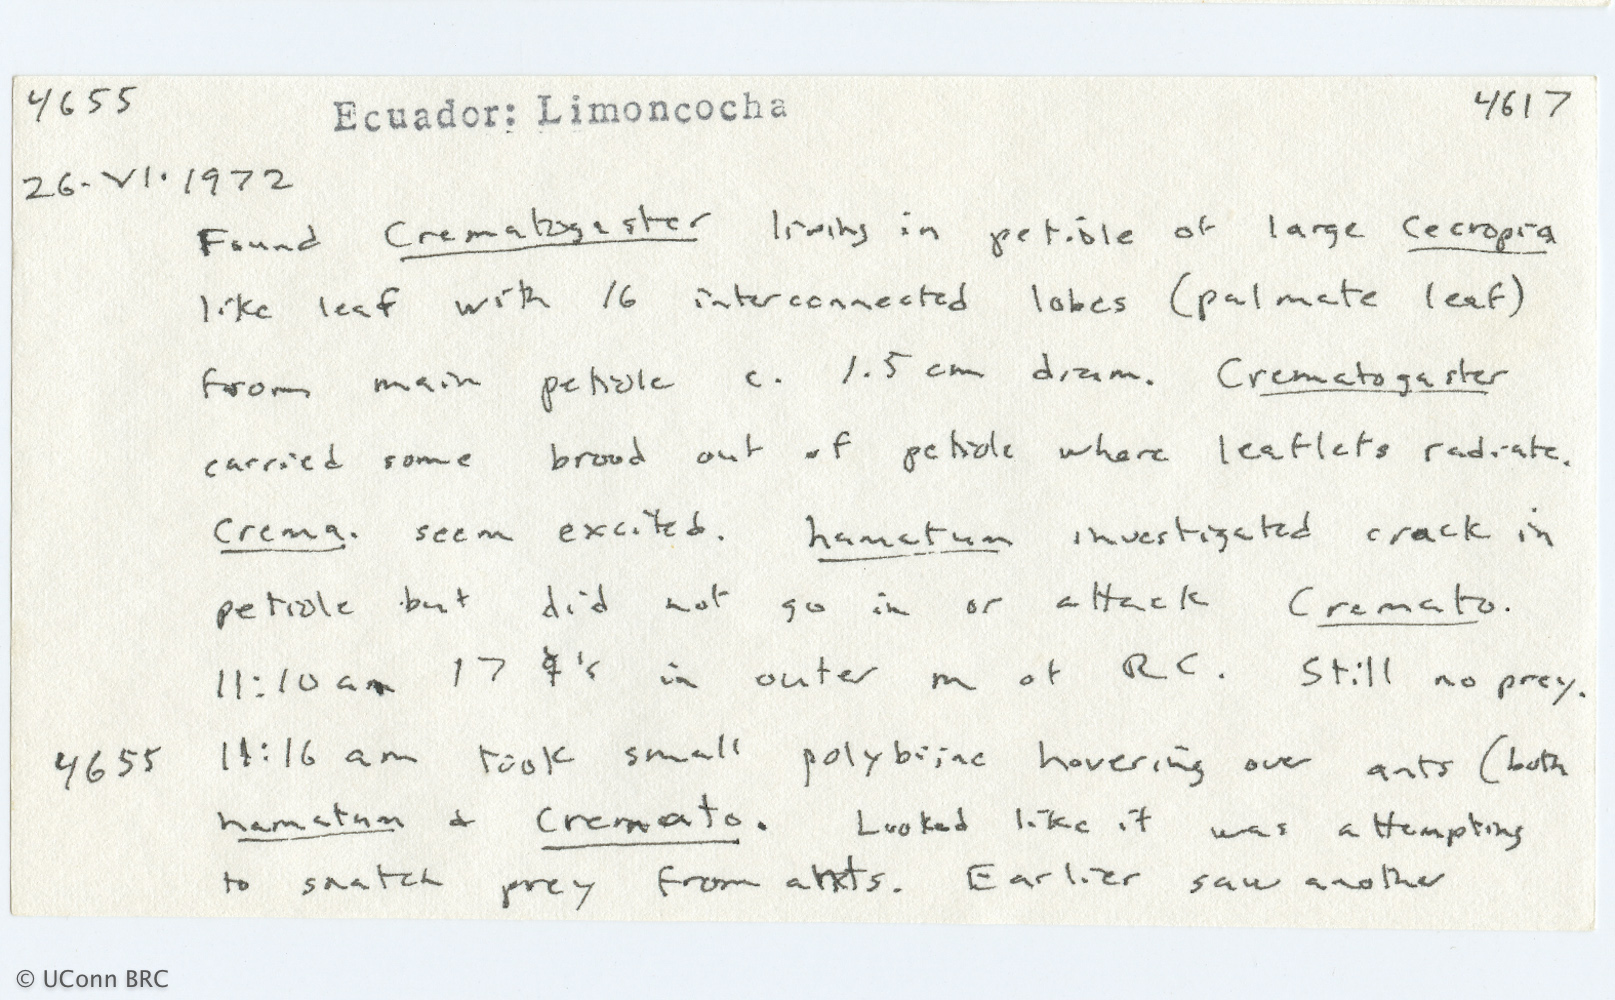 4655 Ecuador: Limoncocha 4617
26.VI.1972
Found Crematogaster living in petiole of large Cecropia
like leaf with 16 interconnected lobes (palmate leaf)
from main petiole c. 1.5 cm diam. Crematogaster
carried some brood out of petiole where leaflets radiate.
Crema. seem excited. hamatum investigated crack in
petiole but did not go in or attack Cremato.
11:10 am 17 ☿'s in outer m of RC. Still no prey.
4655 11:16 am took small polybiine hovering over ants (both
hamatum & Cremato. Looked like it was attempting
to snatch prey from ants. Earlier saw another
© UConn BRC